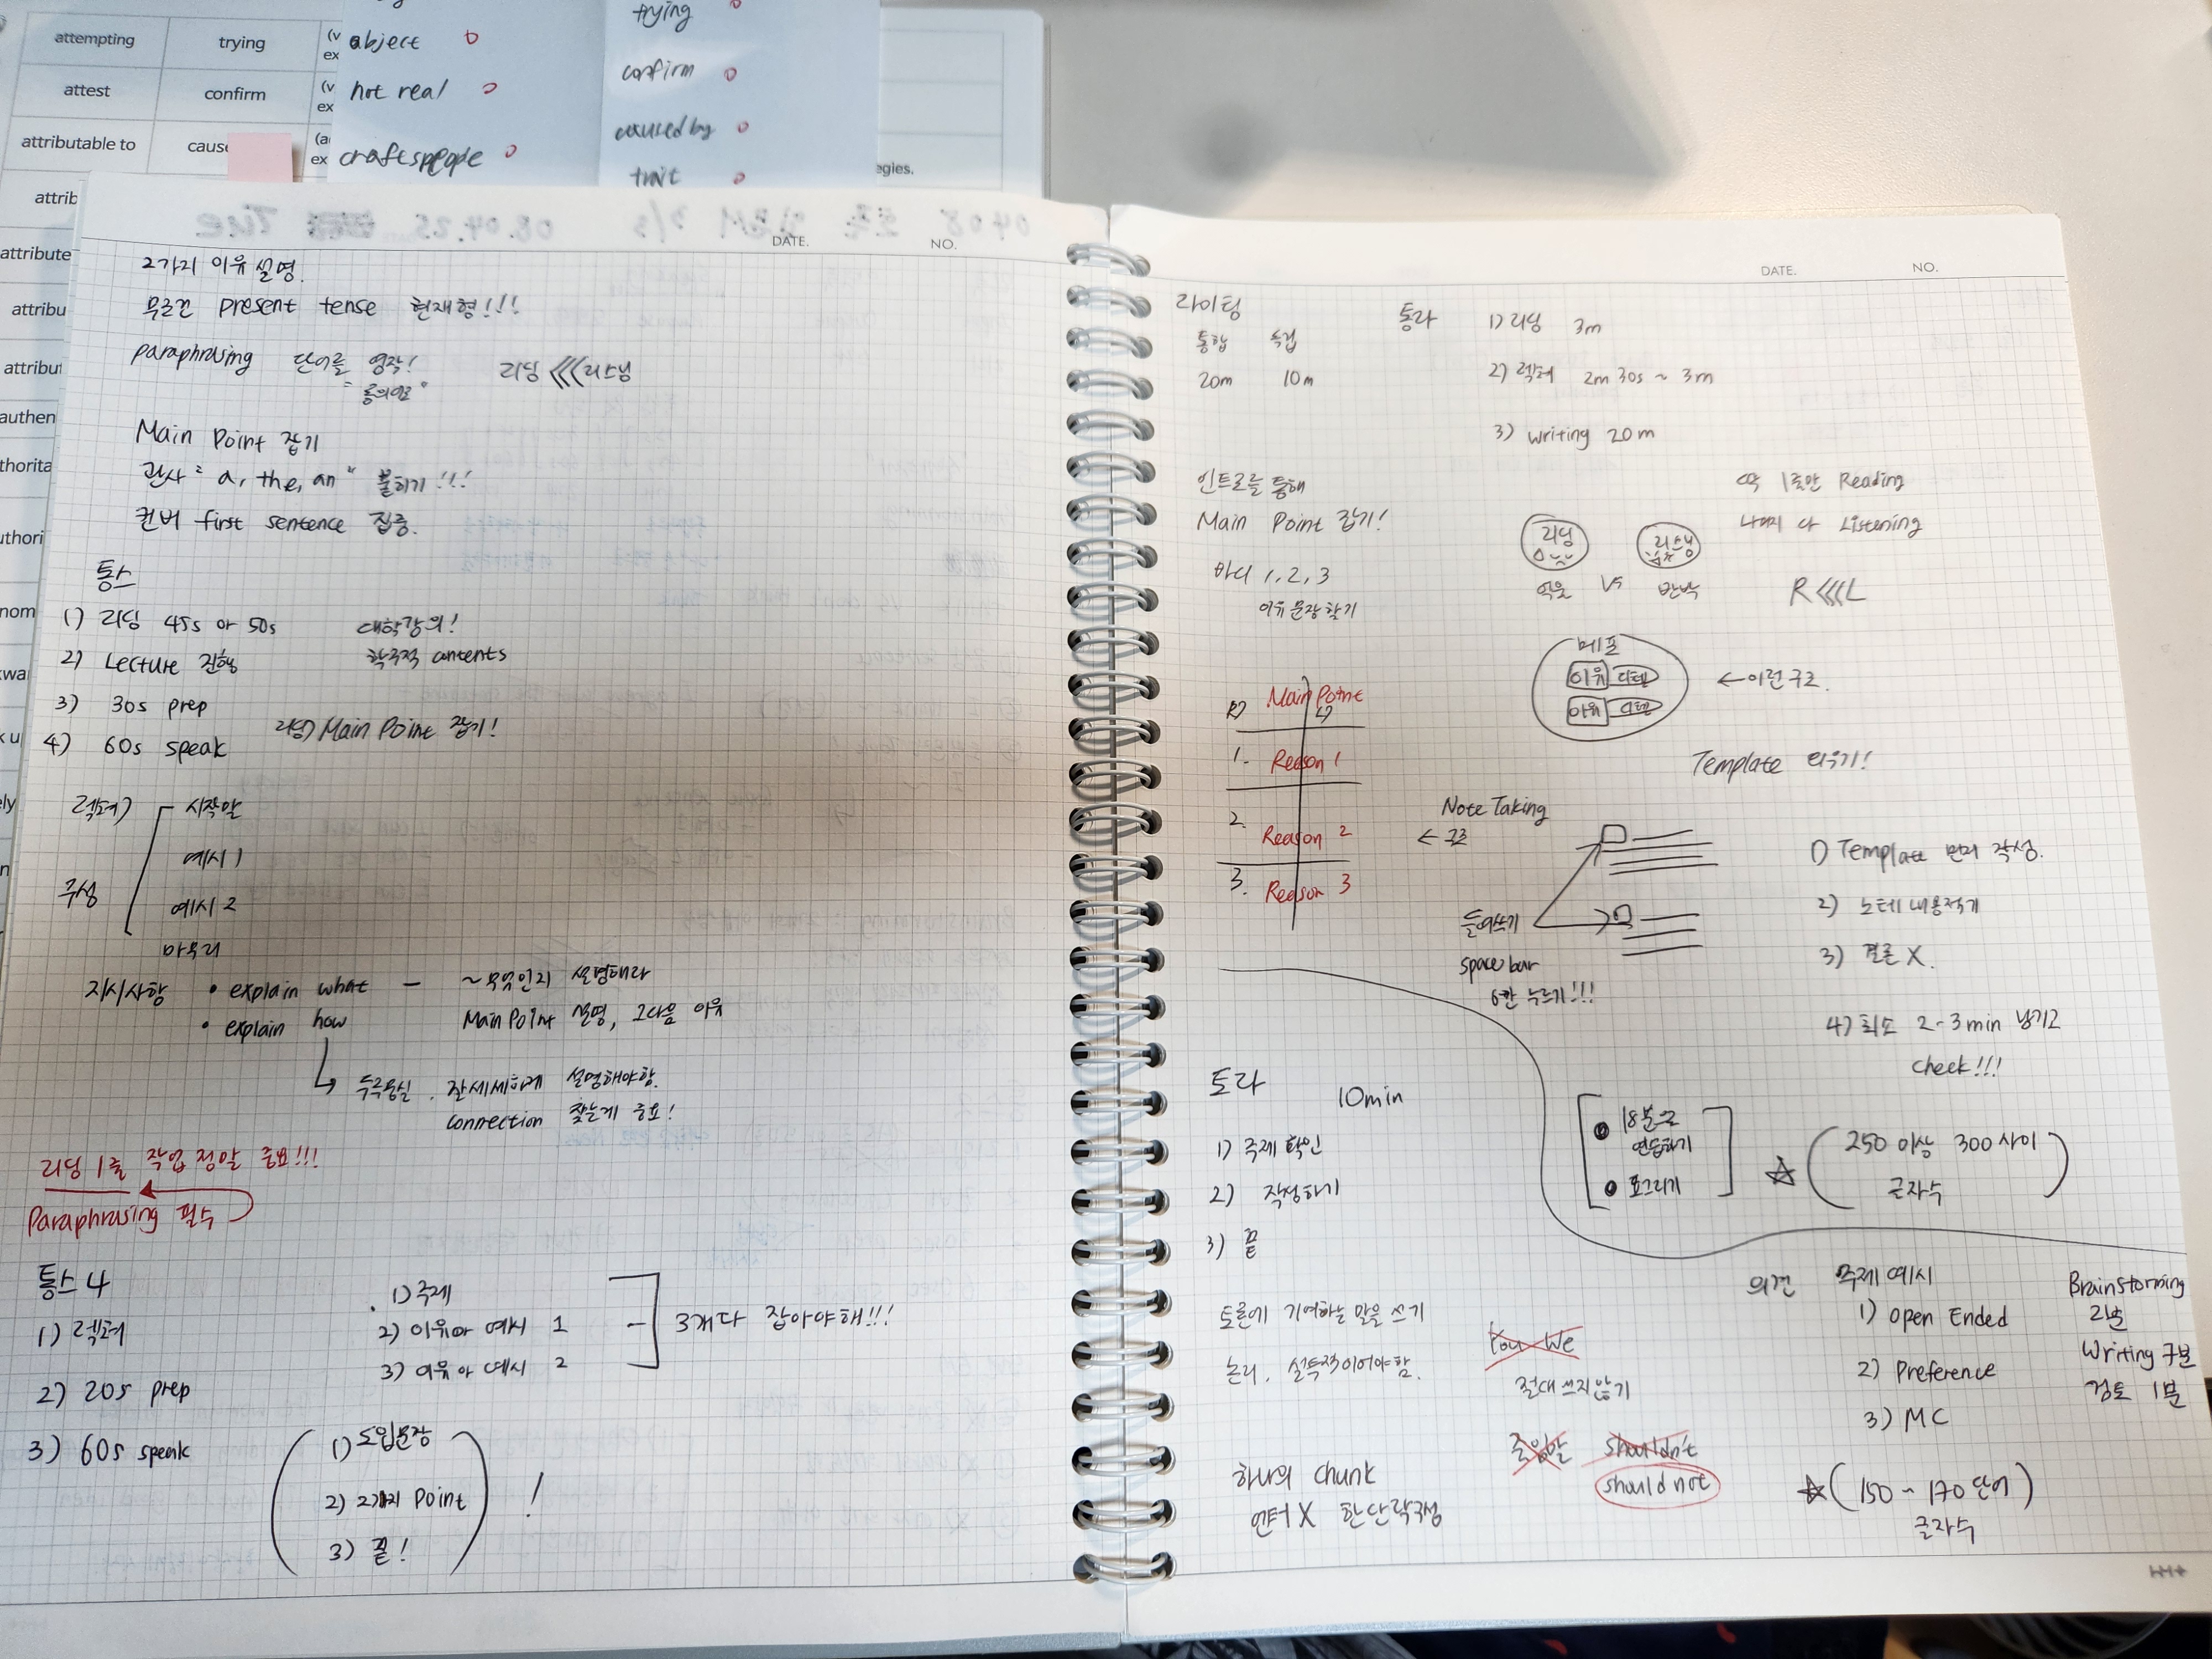 attempting trying
attest confirm
attributable to
object
not real
craftspeople
trying
confirm
caused by
trait
egies.
DATE. NO.
2가지 이유 설명.
무조건 present tense 현재형!!!
paraphrasing 단어를 영작! 리딩 <<< 리스닝
"동의어"
Main Point 잡기
관사 "a, the, an" 붙히기!!!
컨버 first sentence 집중.
통스
1) 리딩 45s or 50s 대학강의!
2) Lecture 진행 학구적 contents
3) 30s prep
4) 60s speak 리딩) Main Point 잡기!
렉쳐) 시작말
예시 1
구성 예시 2
마무리
지시사항 • explain what – ~무엇인지 설명해라
• explain how Main Point 설명, 그다음 이유
두루뭉실. 잔세세하게 설명해야함.
connection 짖는게 중요!
리딩 1줄 작업 정말 중요!!!
Paraphrasing 필수
통스 4
1) 렉쳐
2) 20s prep
3) 60s speak
1) 주제
2) 이유와 예시 1
3) 이유와 예시 2
3개 다 잡아야해!!!
1) 도입문장
2) 2가지 Point
3) 끝!
!
DATE. NO.
라이팅
통합 독립
20m 10m
통라 1) 리딩 3m
2) 렉쳐 2m 30s ~ 3m
3) writing 20m
인트로를 통해
Main Point 잡기!
바디 1, 2, 3
이유 문장 찾기
딱 1줄만 Reading
나머지 다 Listening
리딩 리스닝
억울 VS 반박
R <<< L
메포
이유 디텔
이유 디텔
← 이런 구조.
R) Main Point L)
1. Reason 1
2. Reason 2
3. Reason 3
Note Taking
← 구조
Template 외우기!
들여쓰기
space bar
6칸 누르기!!!
1) Template 먼저 작성.
2) 노테 내용적기
3) 결론 X.
4) 최소 2-3min 남기고
check!!!
• 18분으로
연습하기
• 표그리기
☆ (250 이상 300 사이)
글자수
토라 10min
1) 주제 확인
2) 작성하기
3) 끝
토론에 기여하는 말을 쓰기
논리. 설득적이어야 함.
You We
절대 쓰지 않기
줄임말 shouldn't
should not
하나의 chunk
엔터 X 한 단락 구성
의견 주제 예시
1) Open Ended
2) Preference
3) MC
Brainstorming
2분
Writing 7분
검토 1분
☆ (150 ~ 170 단어)
글자수